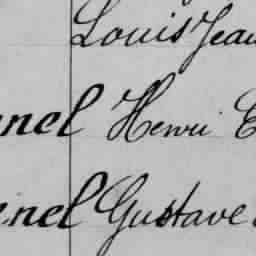 Louis Jean
nel Henri E
nel Gustave